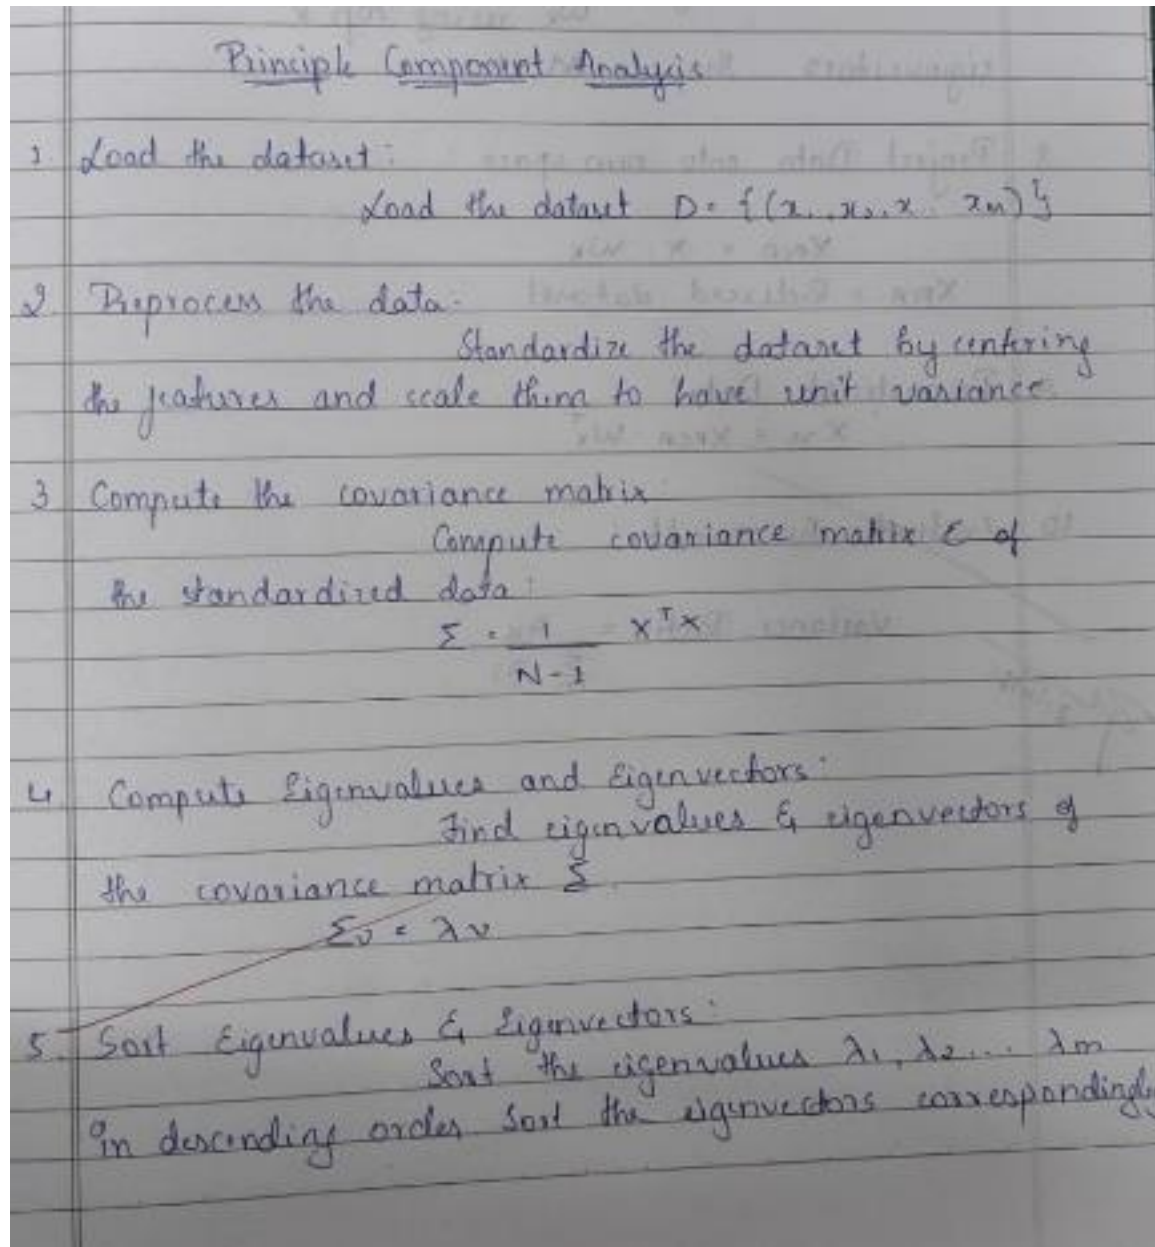 Principle Component Analysis
1 Load the dataset:
Load the dataset D = {(x1, x2, x.. xm)}
2 Preprocess the data:
Standardize the dataset by centering
the features and scale them to have unit variance.
3 Compute the covariance matrix:
Compute covariance matrix Σ of
the standardized data:
Σ = 1 XᵀX
N-1
4 Compute Eigenvalues and Eigenvectors:
Find eigenvalues & eigenvectors of
the covariance matrix Σ.
Σv = λv
5. Sort Eigenvalues & Eigenvectors:
Sort the eigenvalues λ1, λ2... λm
in descending order Sort the eigenvectors correspondingly